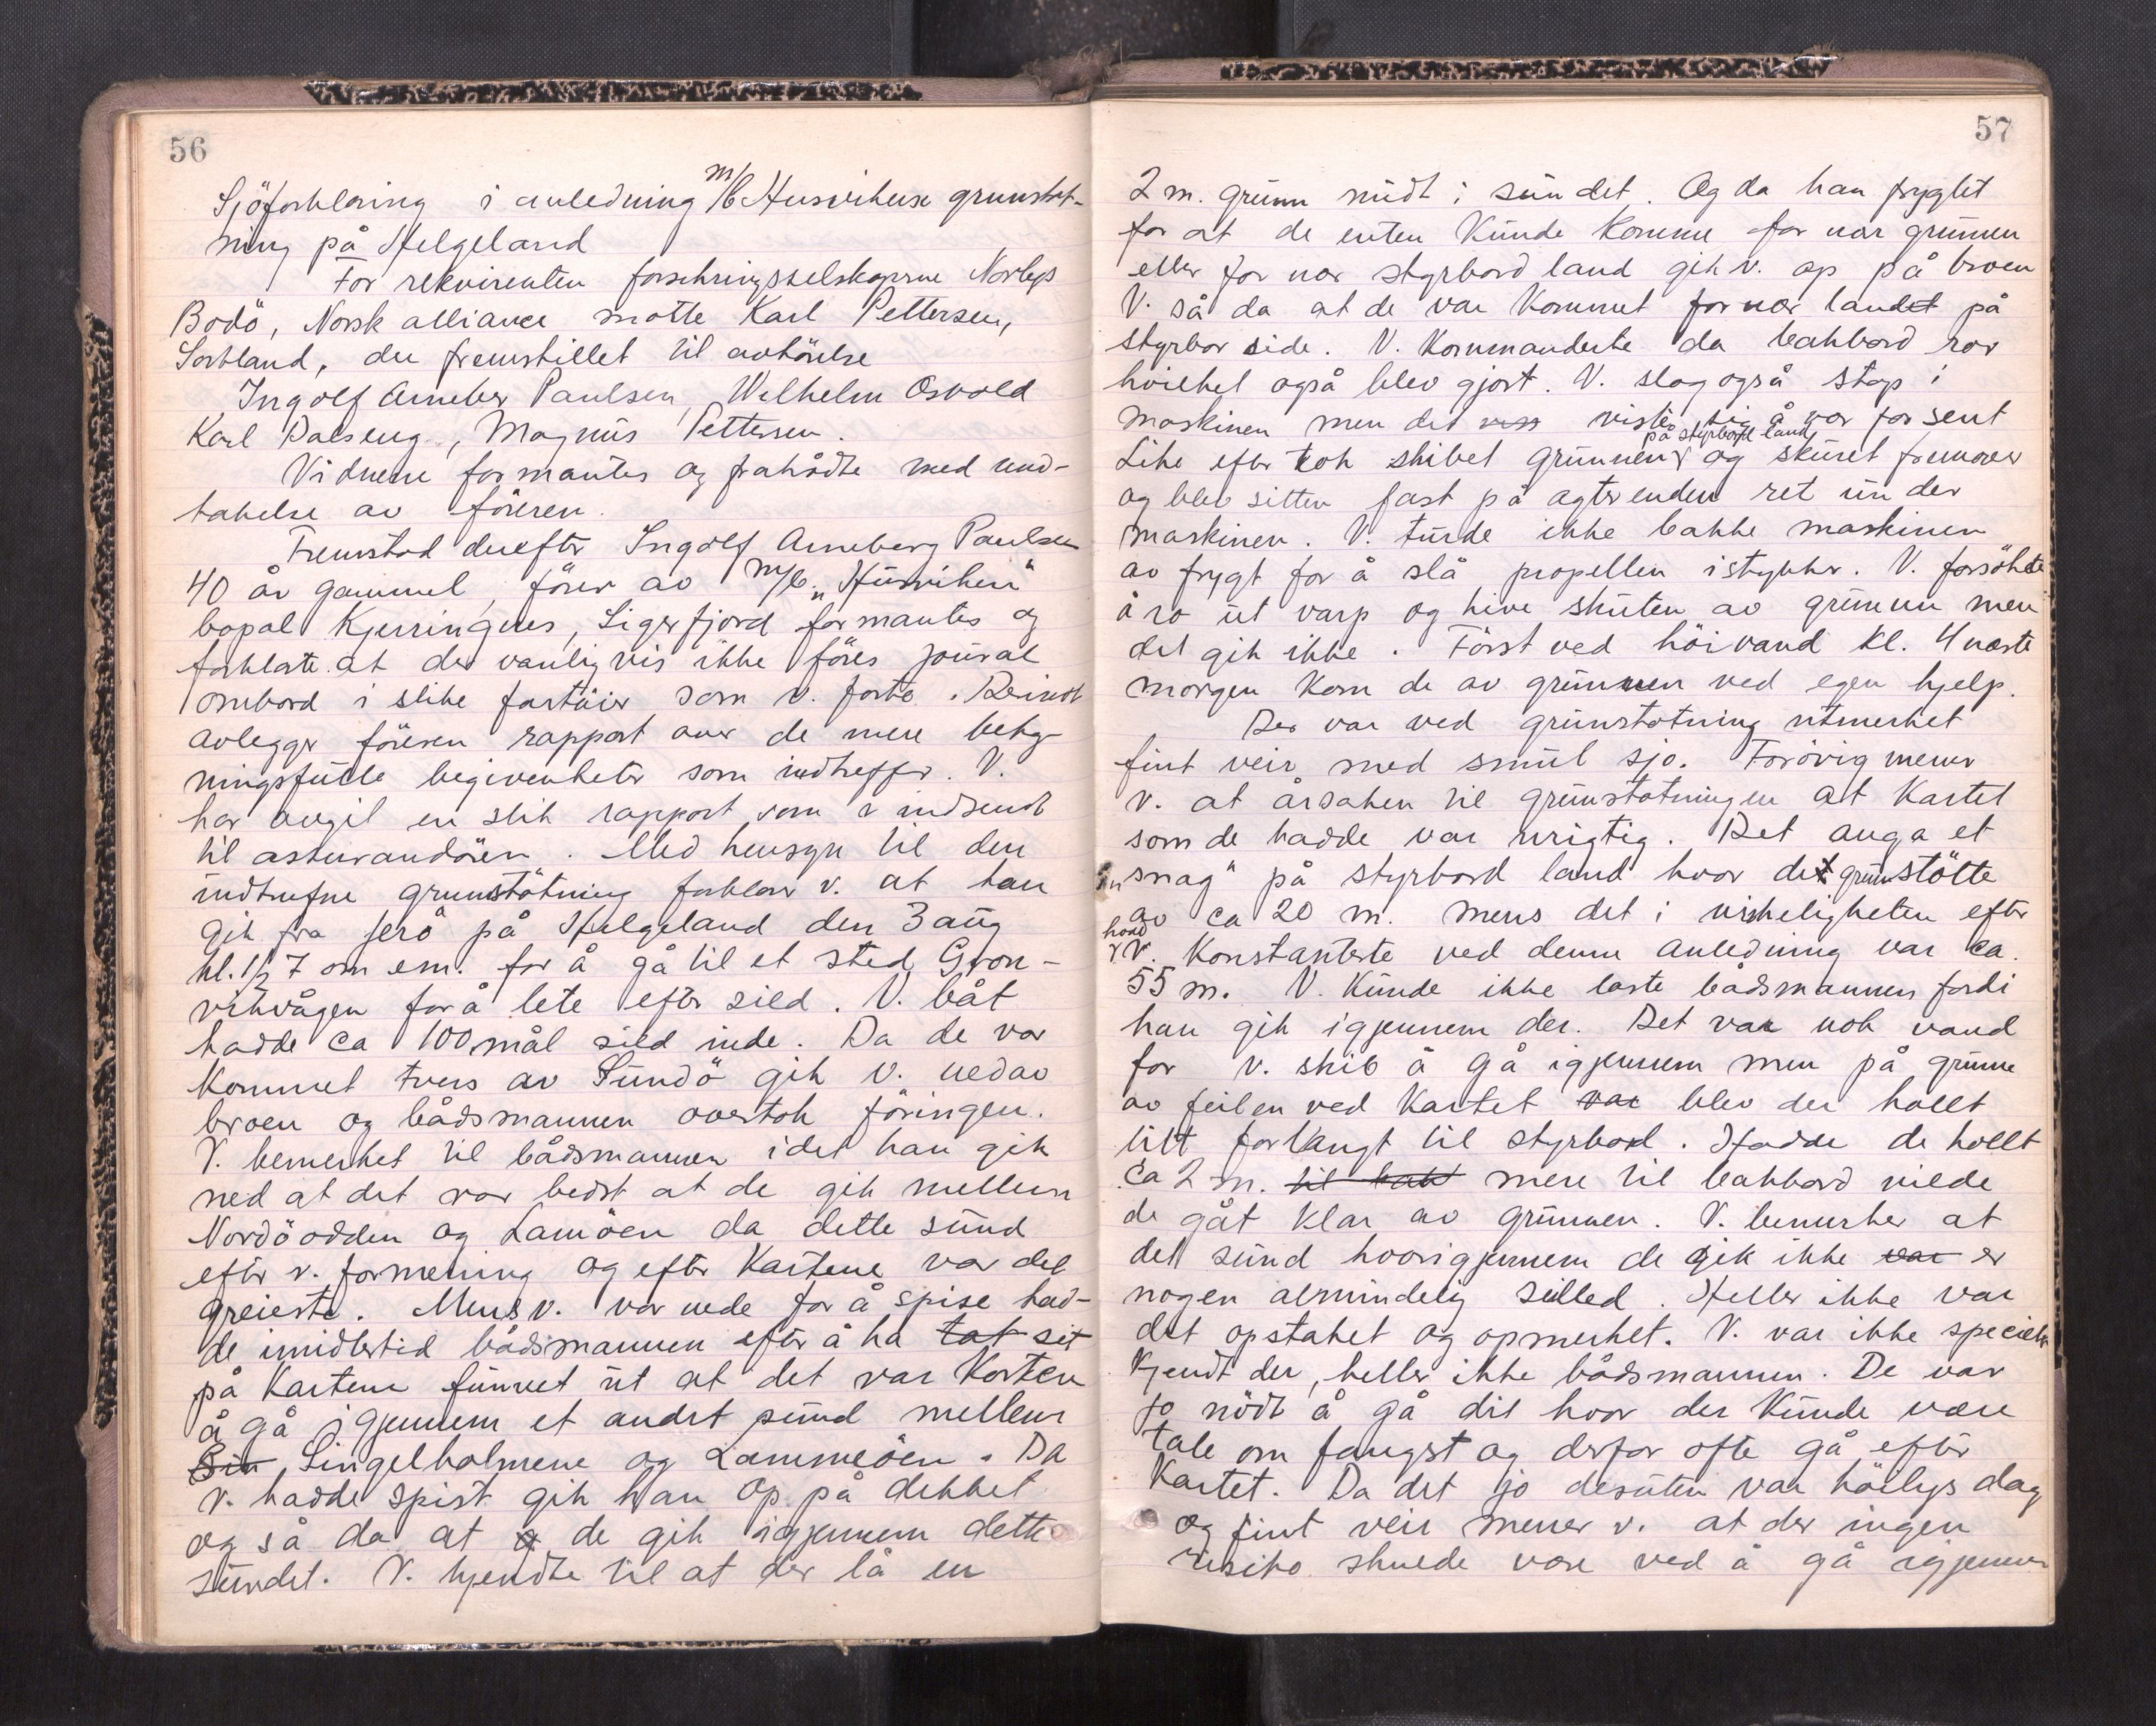 56
Sjöforklaring i anledning m/b Husvikens grunstöt-
ning på Helgeland
For rekvirenten forsikringsselskapene Nordlys
Bodö, Norsk alliance mötte Karl Pettersen,
Sortland, der fremstillet til avhörelse
Ingolf Arneberg Paulsen, Wilhelm Osvald
Karl Dalseng, Magnus Pettersen.
Vidnene formantes og frahådte med und-
takelse av föreren.
Fremstod derefter Ingolf Arneberg Paulsen
40 år gammel, förer av m/b „Husviken"
bopæl Kjerringnes, Sigerfjord formantes og
forklarte at der vanligvis ikke föres journal
ombord i slike fartöier som v. förte. Derimot
avlegger föreren rapport over de mere betyd-
ningsfulle begivenheter som indtreffer. V.
har avgit en slik rapport som er indsendt
til assurandören. Med hensyn til den
indtrufne grunstötning forklarer v. at han
gik fra Herö på Helgeland den 3 aug
kl. 1/2 7 om em. for å gå til et sted Gron-
vikvågen for å lete efter sild. V. båt
hadde ca 100 mål sild inde. Da de var
kommet tvers av Sundö gik v. ned av
broen og bådsmannen overtok föringen.
V. bemerket til bådsmannen idet han gik
ned at det var bedst at de gik mellem
Nordöodden og Lamöen da dette sund
efter v. formening og efter kartene var det
greieste. Mens v. var nede for å spise had-
de imidlertid bådsmannen efter å ha tat set
på kartene funnet ut at det var kortere
å gå igjennem et andet sund mellem
Sin Singelholmene og Lammeöen. Da
v. hadde spist gik han op på dekket
og så da at de gik igjennem dette
sundet. V. kjendte til at der lå en
57
2 m. grunn midt i sundet. Og da han frygtet
for at de enten kunde komme for nær grunnen
eller for nær styrbord land gik v. op på broen
V. så da at de var kommet for nær landet på
styrbor side. V. kommanderte da bakbord ror
hvilket også blev gjort. V. slog også stop i
maskinen men det viss viste sig å vær for sent
på styrbord land
Like efter tok skibet grunnen og skuret fremover
og blev sitten fast på agterenden ret under
maskinen. V. turde ikke bakke maskinen
av frygt for å slå propellen istykker. V. forsökte
å ro ut varp og hive skuten av grunnen men
det gik ikke. Först ved höivand kl. 4 næste
morgen kom de av grunnen ved egen hjelp.
Der var ved grunstötning utmerket
fint veir med smul sjö. Forövrig mener
v. at årsaken til grunstötningen at kartet
som de hadde var urigtig. Det anga et
„snag" på styrbord land hvor det grunstötte
av ca 20 m. mens det i virkeligheten efter
hvad
V. konstanterte ved denne anledning var ca.
55 m. V. kunde ikke laste bådsmannen fordi
han gik igjennem der. Det var nok vand
for v. skib å gå igjennem men på grunn
av feilen ved kartet var blev der holdt
litt for langt til styrbord. Hadde de holdt
ca 2 m. til bak mere til bakbord vilde
de gåt klar av grunnen. V. bemerker at
det sund hvorigjennem de gik ikke var er
nogen almindelig silled. Heller ikke var
det opstaket og opmerket. V. var ikke specielt
kjendt der, heller ikke bådsmannen. De var
jo nödt å gå dit hvor der kunde være
tale om fangst og derfor ofte gå efter
kartet. Da det jo desuten var höilys dag
og fint veir mener v. at der ingen
risiko skulde være ved å gå igjennem